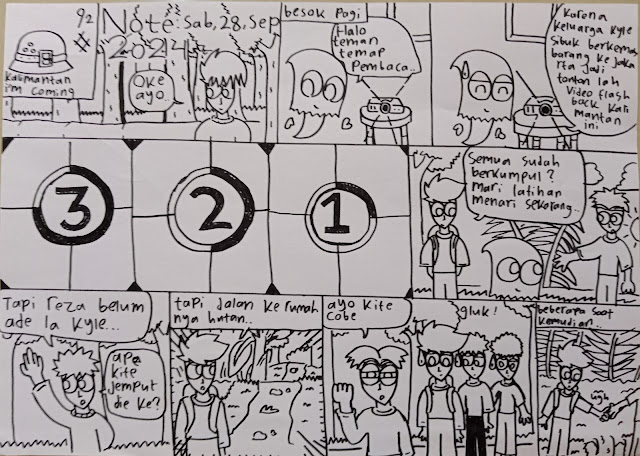 92
#
Note: Sab, 28, Sep
2024
Kalimantan
i'm coming
Oke
ayo..
besok pagi
Halo
teman
temap
Pembaca..
Karena
keluarga Kyle
Sibuk berkema
barang ke Jaka
rta jadi
tonton lah
Video flash
back Kali
mantan
ini
3
2
1
Semua sudah
berkumpul?
Mari latihan
menari sekarang..
Tapi reza belum
ade la Kyle...
apa
kite
jemput
die ke?
tapi jalan ke rumah
nya hutan..
ayo kite
cobe
gluk!
beberapa saat
kemudian..